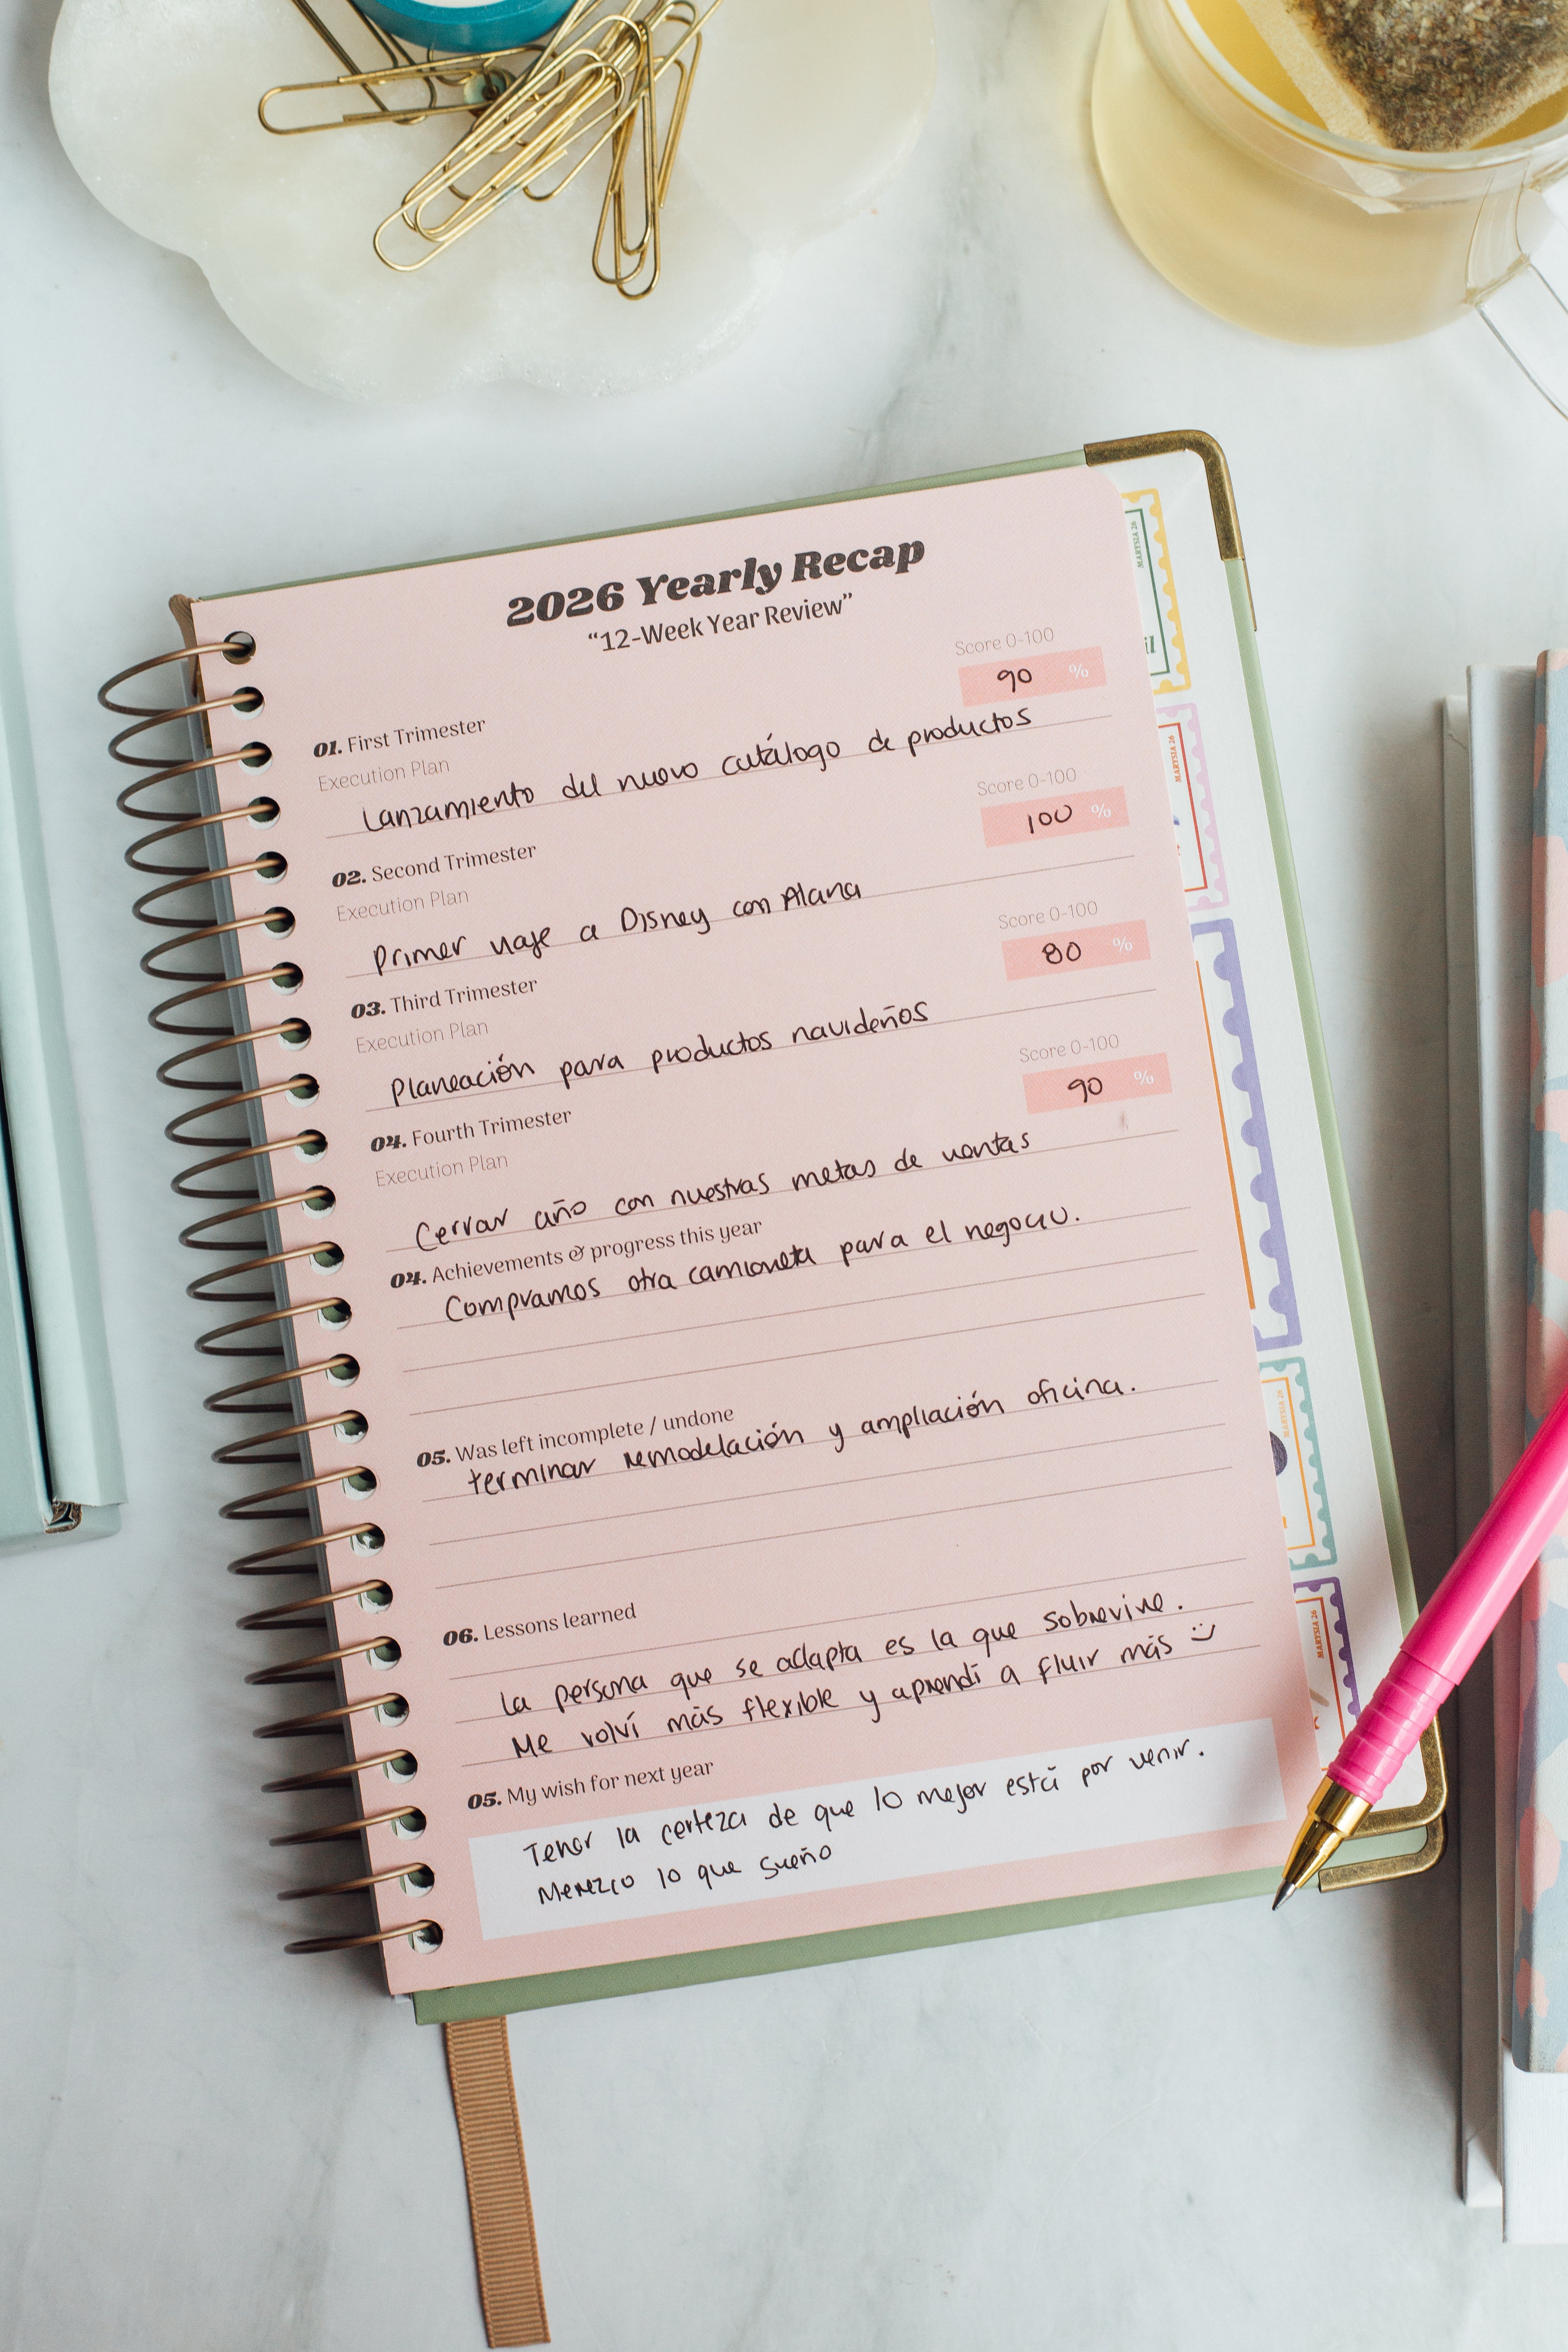 2026 Yearly Recap
“12-Week Year Review”
Score 0-100
90 %
01. First Trimester
Execution Plan
Lanzamiento del nuevo catálogo de productos
Score 0-100
100 %
02. Second Trimester
Execution Plan
Primer viaje a Disney con Alana
Score 0-100
80 %
03. Third Trimester
Execution Plan
Planeación para productos navideños
Score 0-100
90 %
04. Fourth Trimester
Execution Plan
Cerrar año con nuestras metas de ventas
04. Achievements & progress this year
Compramos otra camioneta para el negocio.
05. Was left incomplete / undone
terminar remodelación y ampliación oficina.
06. Lessons learned
La persona que se adapta es la que sobrevive.
Me volví más flexible y aprendí a fluir más :)
05. My wish for next year
Tener la certeza de que lo mejor está por venir.
Merezco lo que sueño
MARYSIA 26
MARYSIA 26
MARYSIA 26
MARYSIA 26